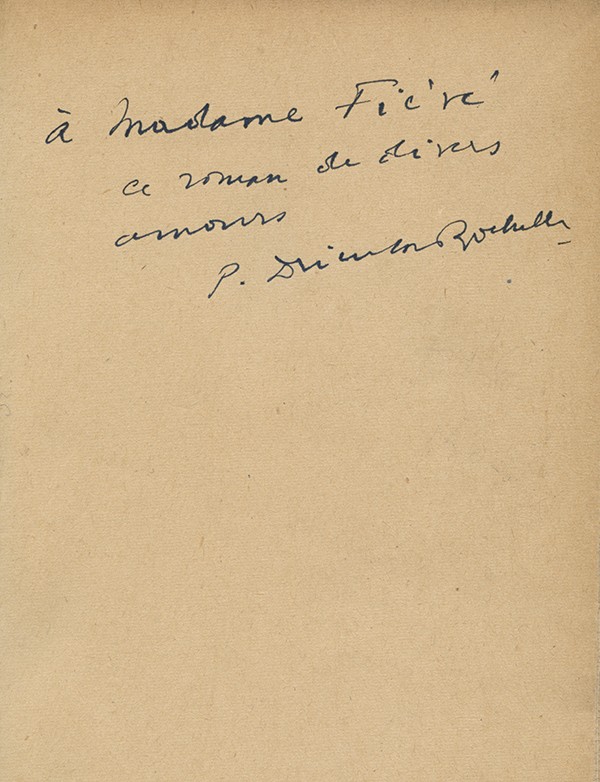 à Madame Fiévé
ce roman de divers
amours
P. Drieu la Rochelle